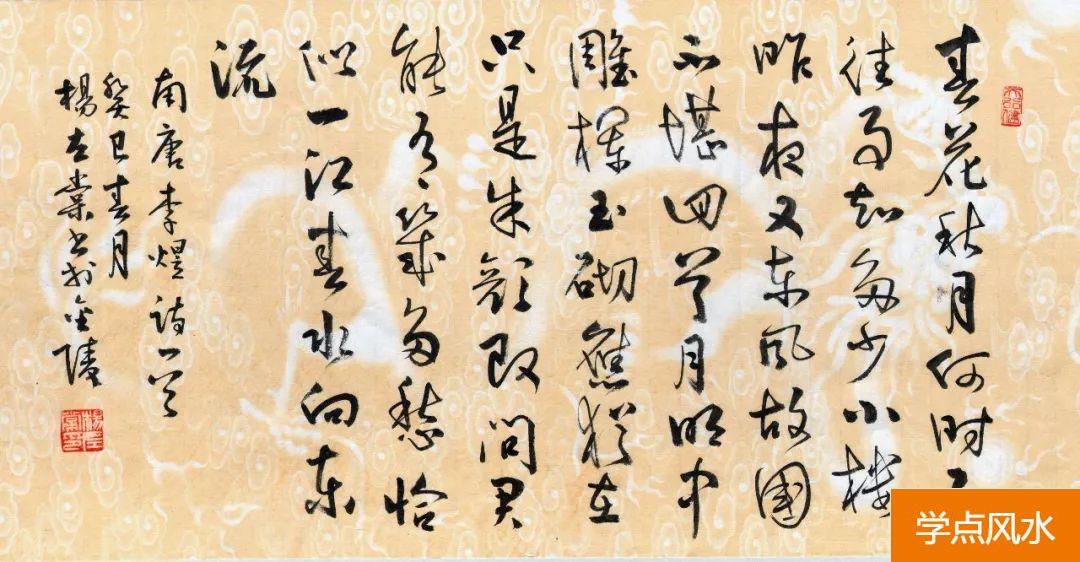 春花秋月何时了
往事知多少小楼
昨夜又东风故國
不堪回首月明中
雕欄玉砌應猶在
只是朱顔改問君
能有幾多愁恰
似一江春水向东
流
南唐李煜詩一首
癸巳春月
楊 棠书於金陵
学点风水